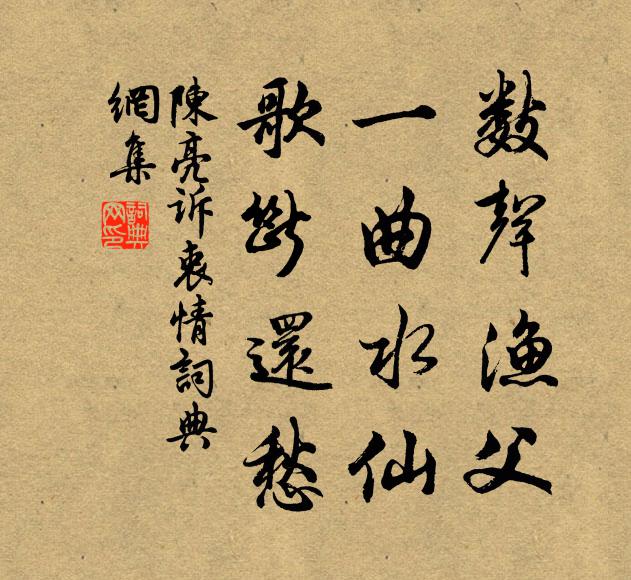 數聲漁父
一曲水仙
歌斷還愁
陳亮訴衷情詞典
網集
詞典
网印